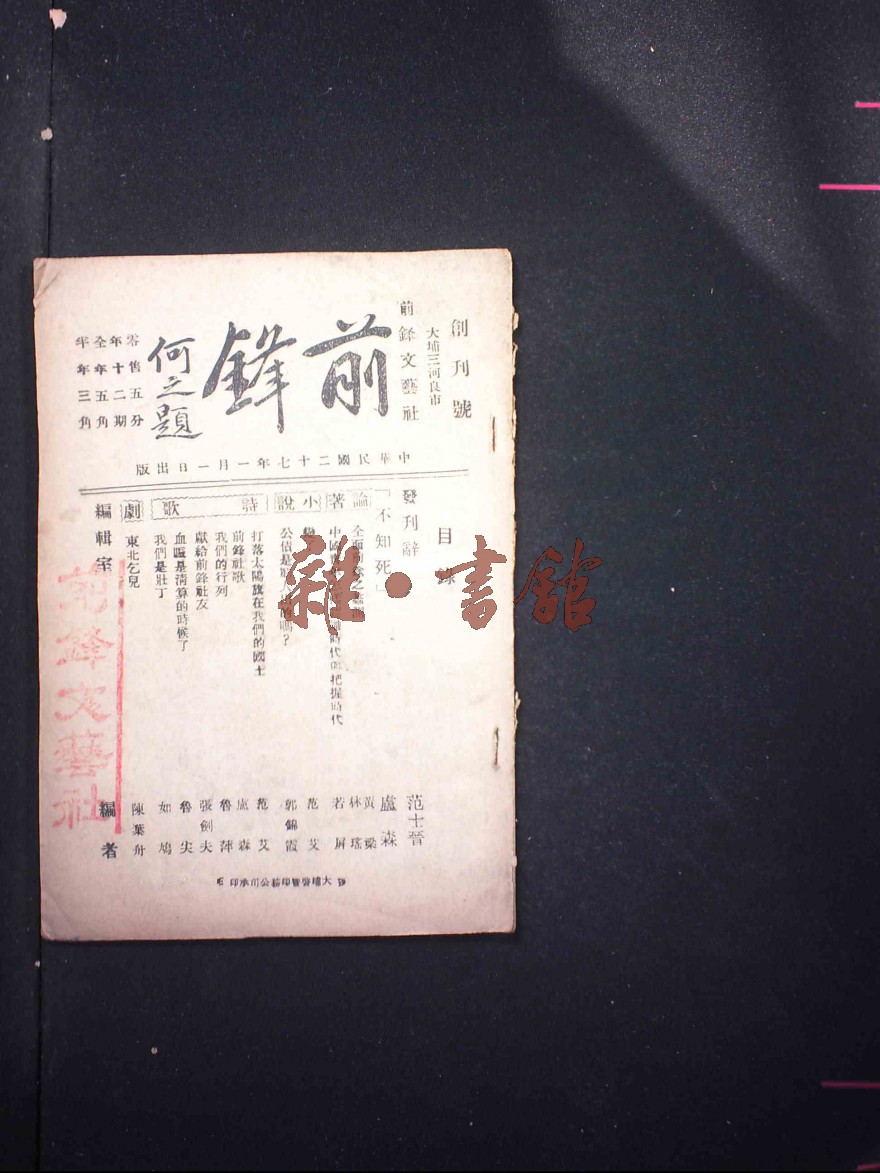 創刊號
前鋒文藝社
大埔三河良市
前鋒
何之題
零售五分
全年十二期
全年五角
半年三角
中華民國二十七年一月一日出版
目錄
發刊辭
「不知死」
論著
全面
中國 時代與把握時代
小說
公債是 嗎?
詩歌
打落太陽旗在我們的國土
前鋒社歌
我們的行列
獻給前鋒社友
血 是清算的時候了
我們是壯丁
劇
東北乞兒
編輯室
范士晉
盧森
黃梁
林瑤
若屏
范艾
郭錦霞
范艾
盧森
魯萍
張劍夫
魯尖
如鳩
陳葉舟
編者
大埔 印務公司承印
前鋒文藝社
雜·書館